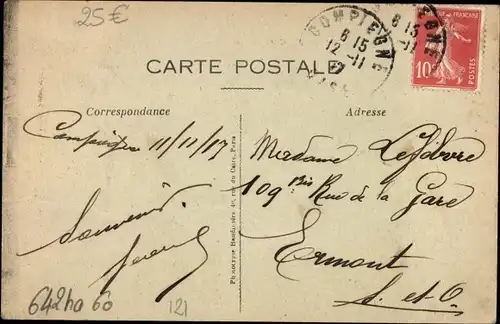 25€
COMPIEGNE
6 15
12 -11
17
OISE
6 15
-11
10c
POSTES
CARTE POSTALE
Correspondance
Adresse
Compiègne 11/11/17
Souvenir
Madame Lefebvre
109 Bis Rue de la Gare
Ermont
S. et O
Phototypie Baudinière 40, rue du Caire, Paris
642ha 60
121